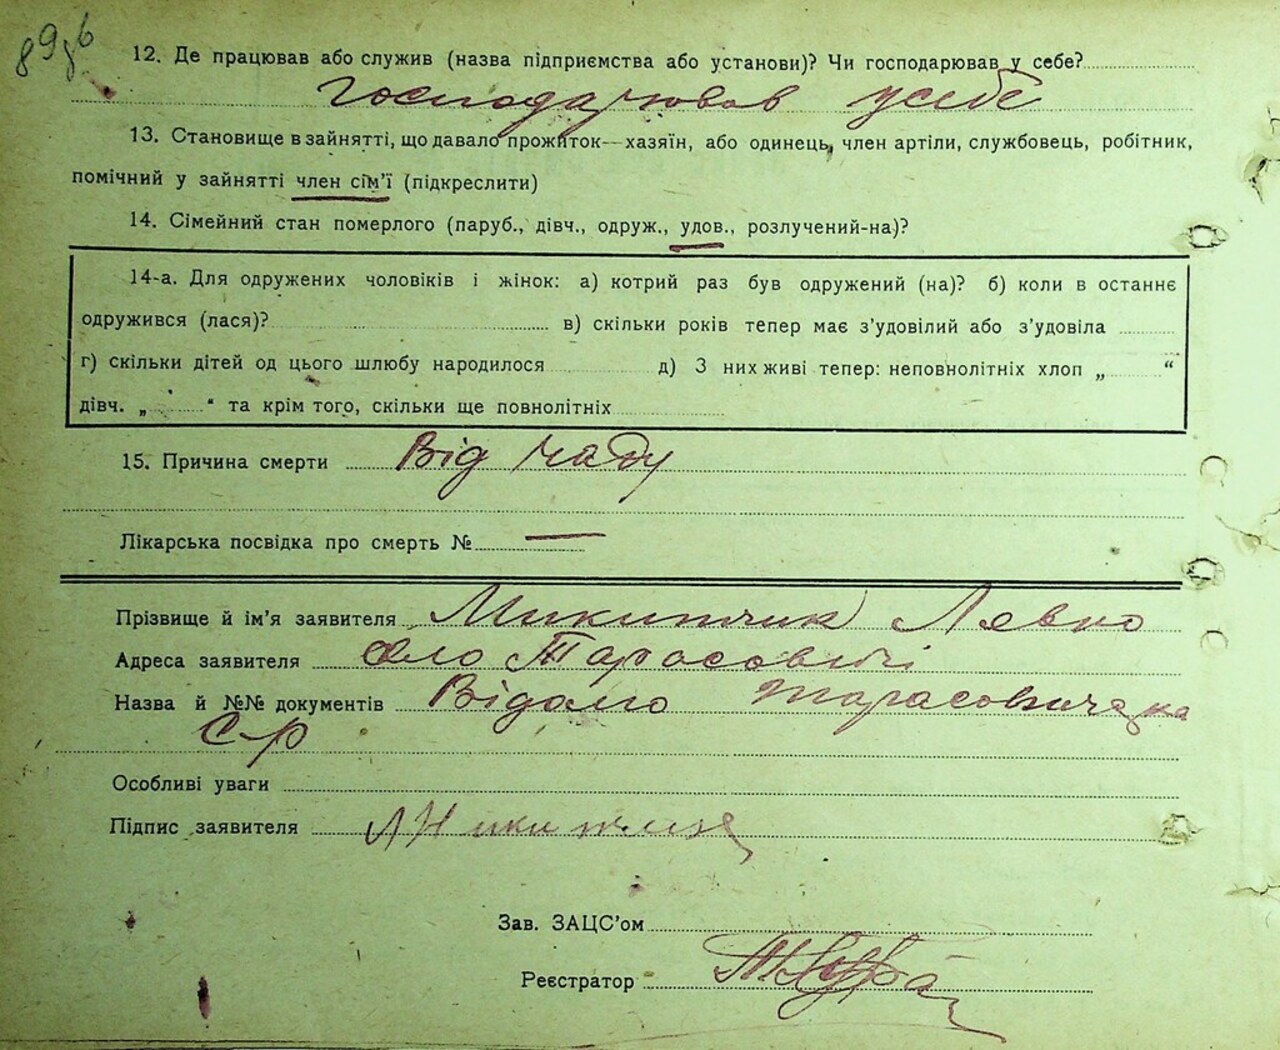 89зб
12. Де працював або служив (назва підприємства або установи)? Чи господарював у себе?
Господарював у себе
13. Становище в зайнятті, що давало прожиток—хазяїн, або одинець, член артіли, службовець, робітник,
помічний у зайнятті член сім'ї (підкреслити)
14. Сімейний стан померлого (паруб., дівч., одруж., удов., розлучений-на)?
14-а. Для одружених чоловіків і жінок: а) котрий раз був одружений (на)? б) коли в останнє
одружився (лася)? в) скільки років тепер має з'удовілий або з'удовіла
г) скільки дітей од цього шлюбу народилося д) З них живі тепер: неповнолітніх хлоп „ “
дівч. „ “ та крім того, скільки ще повнолітніх
15. Причина смерти Від чаду
Лікарська посвідка про смерть № —
Прізвище й ім'я заявителя Микитчик Левко
Адреса заявителя село Тарасовичі
Назва й №№ документів Відомо Тарасовичська
С-р
Особливі уваги
Підпис заявителя
Зав. ЗАЦС'ом
Реєстратор